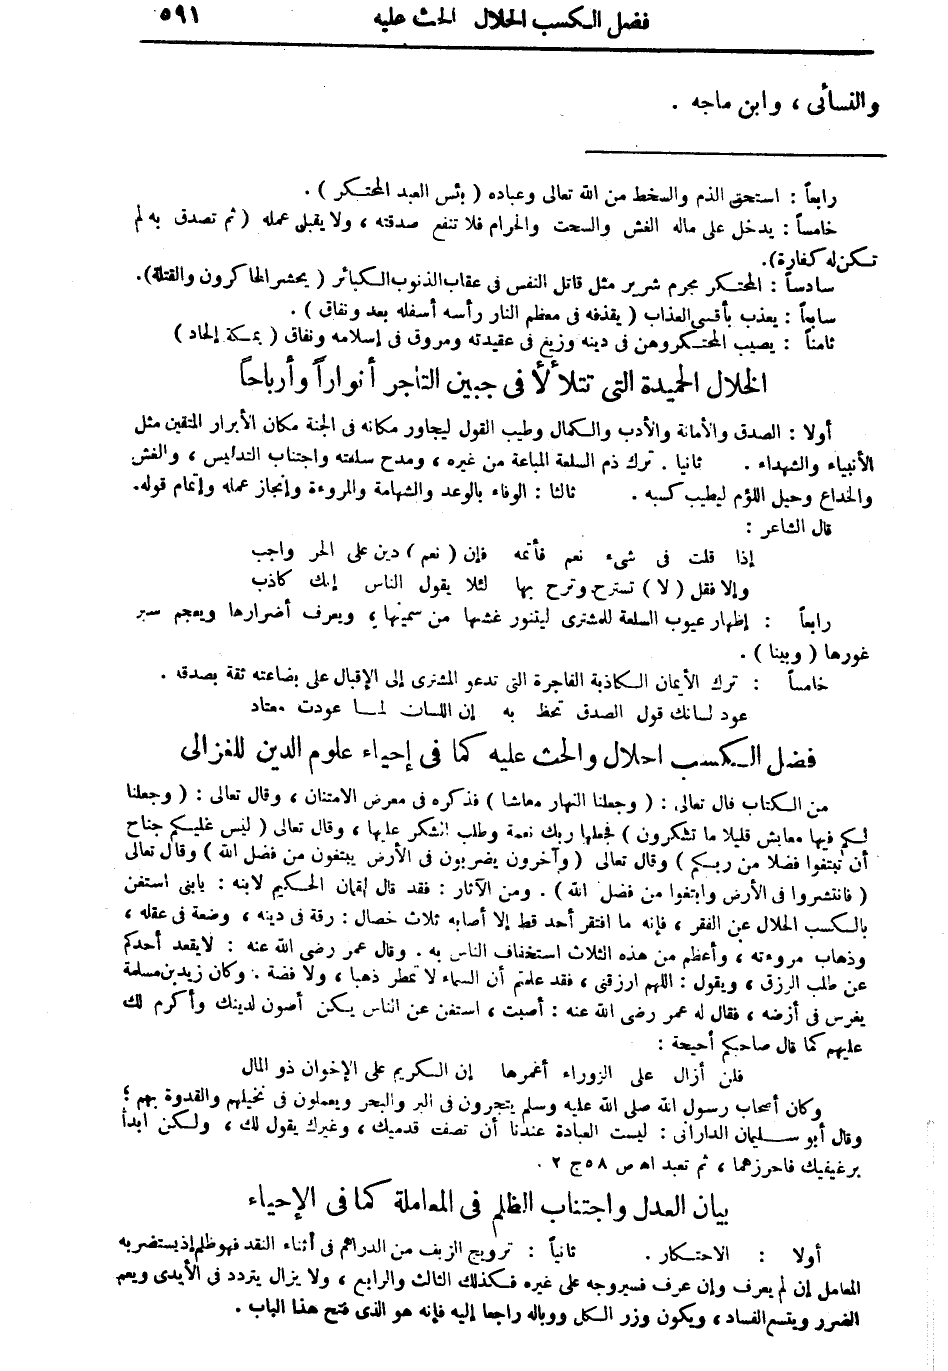 فضل الكسب الحلال الحث عليه ٥٩١
والنسائى ، وابن ماجه .
رابعاً : استحق الذم والسخط من الله تعالى وعباده ( بئس العبد المحتكر ) .
خامساً : يدخل على ماله الغش والسحت والحرام فلا تنفع صدقته ، ولا يقبل عمله ( ثم تصدق به لم
تكن له كفارة).
سادساً : المحتكر مجرم شرير مثل قاتل النفس فى عقاب الذنوب الكبائر ( يحشر الحاكرون والقتلة).
سابعاً : يعذب بأقسى العذاب ( يقذفه فى معظم النار رأسه أسفله بعد ونفاق ) .
ثامناً : يصيب المحتكروهن فى دينه وزيغ فى عقيدته ومروق فى إسلامه ونفاق ( بمكة إلحاد )
الخلال الحميدة التى تتلألأ فى جبين التاجر أنواراً وأرباحاً
أولا : الصدق والأمانة والأدب والكمال وطيب القول ليجاور مكانه فى الجنة مكان الأبرار المتقين مثل
الأنبياء والشهداء . ثانيا . ترك ذم السلعة المباعة من غيره ، ومدح سلعته واجتناب التدليس ، والغش
والخداع وحيل اللؤم ليطيب كسبه . ثالثا : الوفاء بالوعد والشهامة والمروءة وإنجاز عمله وإتمام قوله.
قال الشاعر :
إذا قلت فى شىء نعم فأتمه فإن ( نعم ) دين على الحر واجب
وإلا فقل ( لا ) تسترح وترح بها لئلا يقول الناس إنك كاذب
رابعاً : إظهار عيوب السلعة للمشترى ليتنور غشها من سمينها ، ويعرف أضرارها ويعجم سبر
غورها ( وبينا ) .
خامساً : ترك الأيمان الكاذبة الفاجرة التى تدعو المشترى إلى الإقبال على بضاعته ثقة بصدقه .
عود لسانك قول الصدق تحظ به إن اللسان لما عودت معتاد
فضل الكسب احلال والحث عليه كما فى إحياء علوم الدين للغزالى
من الكتاب قال تعالى : ( وجعلنا النهار معاشا ) فذكره فى معرض الامتنان ، وقال تعالى : ( وجعلنا
لكم فيها معايش قليلا ما تشكرون ) فجعلها ربك نعمة وطلب الشكر عليها ، وقال تعالى ( ليس عليكم جناح
أن تبتغوا فضلا من ربكم ) وقال تعالى ( وآخرون يضربون فى الأرض يبتغون من فضل الله ) وقال تعالى
( فانتشروا فى الأرض وابتغوا من فضل الله ) . ومن الآثار : فقد قال لقمان الحكيم لابنه : يابنى استغن
بالكسب الحلال عن الفقر ، فإنه ما افتقر أحد قط إلا أصابه ثلاث خصال : رقة فى دينه ، وضعة فى عقله ،
وذهاب مروءته ، وأعظم من هذه الثلاث استخفاف الناس به . وقال عمر رضى الله عنه : لايقعد أحدكم
عن طلب الرزق ، ويقول : اللهم ارزقنى ، فقد علمتم أن السماء لا تمطر ذهبا ، ولا فضة . وكان زيد بن مسلمة
يغرس فى أرضه ، فقال له عمر رضى الله عنه : أصبت ، استغن عن الناس يكن أصون لدينك وأكرم لك
عليهم كما قال صاحبكم أحيحة :
فلن أزال على الزوراء أغمرها إن الكريم على الإخوان ذو المال
وكان أصحاب رسول الله صلى الله عليه وسلم يتجرون فى البر والبحر ويعملون فى نخيلهم والقدوة بهم ؛
وقال أبو سليمان الدارانى : ليست العبادة عندنا أن تصف قدميك ، وغيرك يقول لك ، ولكن ابدأ
برغيفيك فاحرزهما ، ثم تعبد اه ص ٥٨ ج ٢ .
بيان العدل واجتناب الظلم فى المعاملة كما فى الإحياء
أولا : الاحتكار . ثانياً : ترويج الزيف من الدراهم فى أثناء النقد فهو ظلم إذ يستضر به
المعامل إن لم يعرف وإن عرف فسيروجه على غيره فكذلك الثالث والرابع ، ولا يزال يتردد فى الأيدى ويعم
الضرر ويتسع الفساد ، ويكون وزر الكل ووباله راجعا إليه فإنه هو الذى فتح هذا الباب .